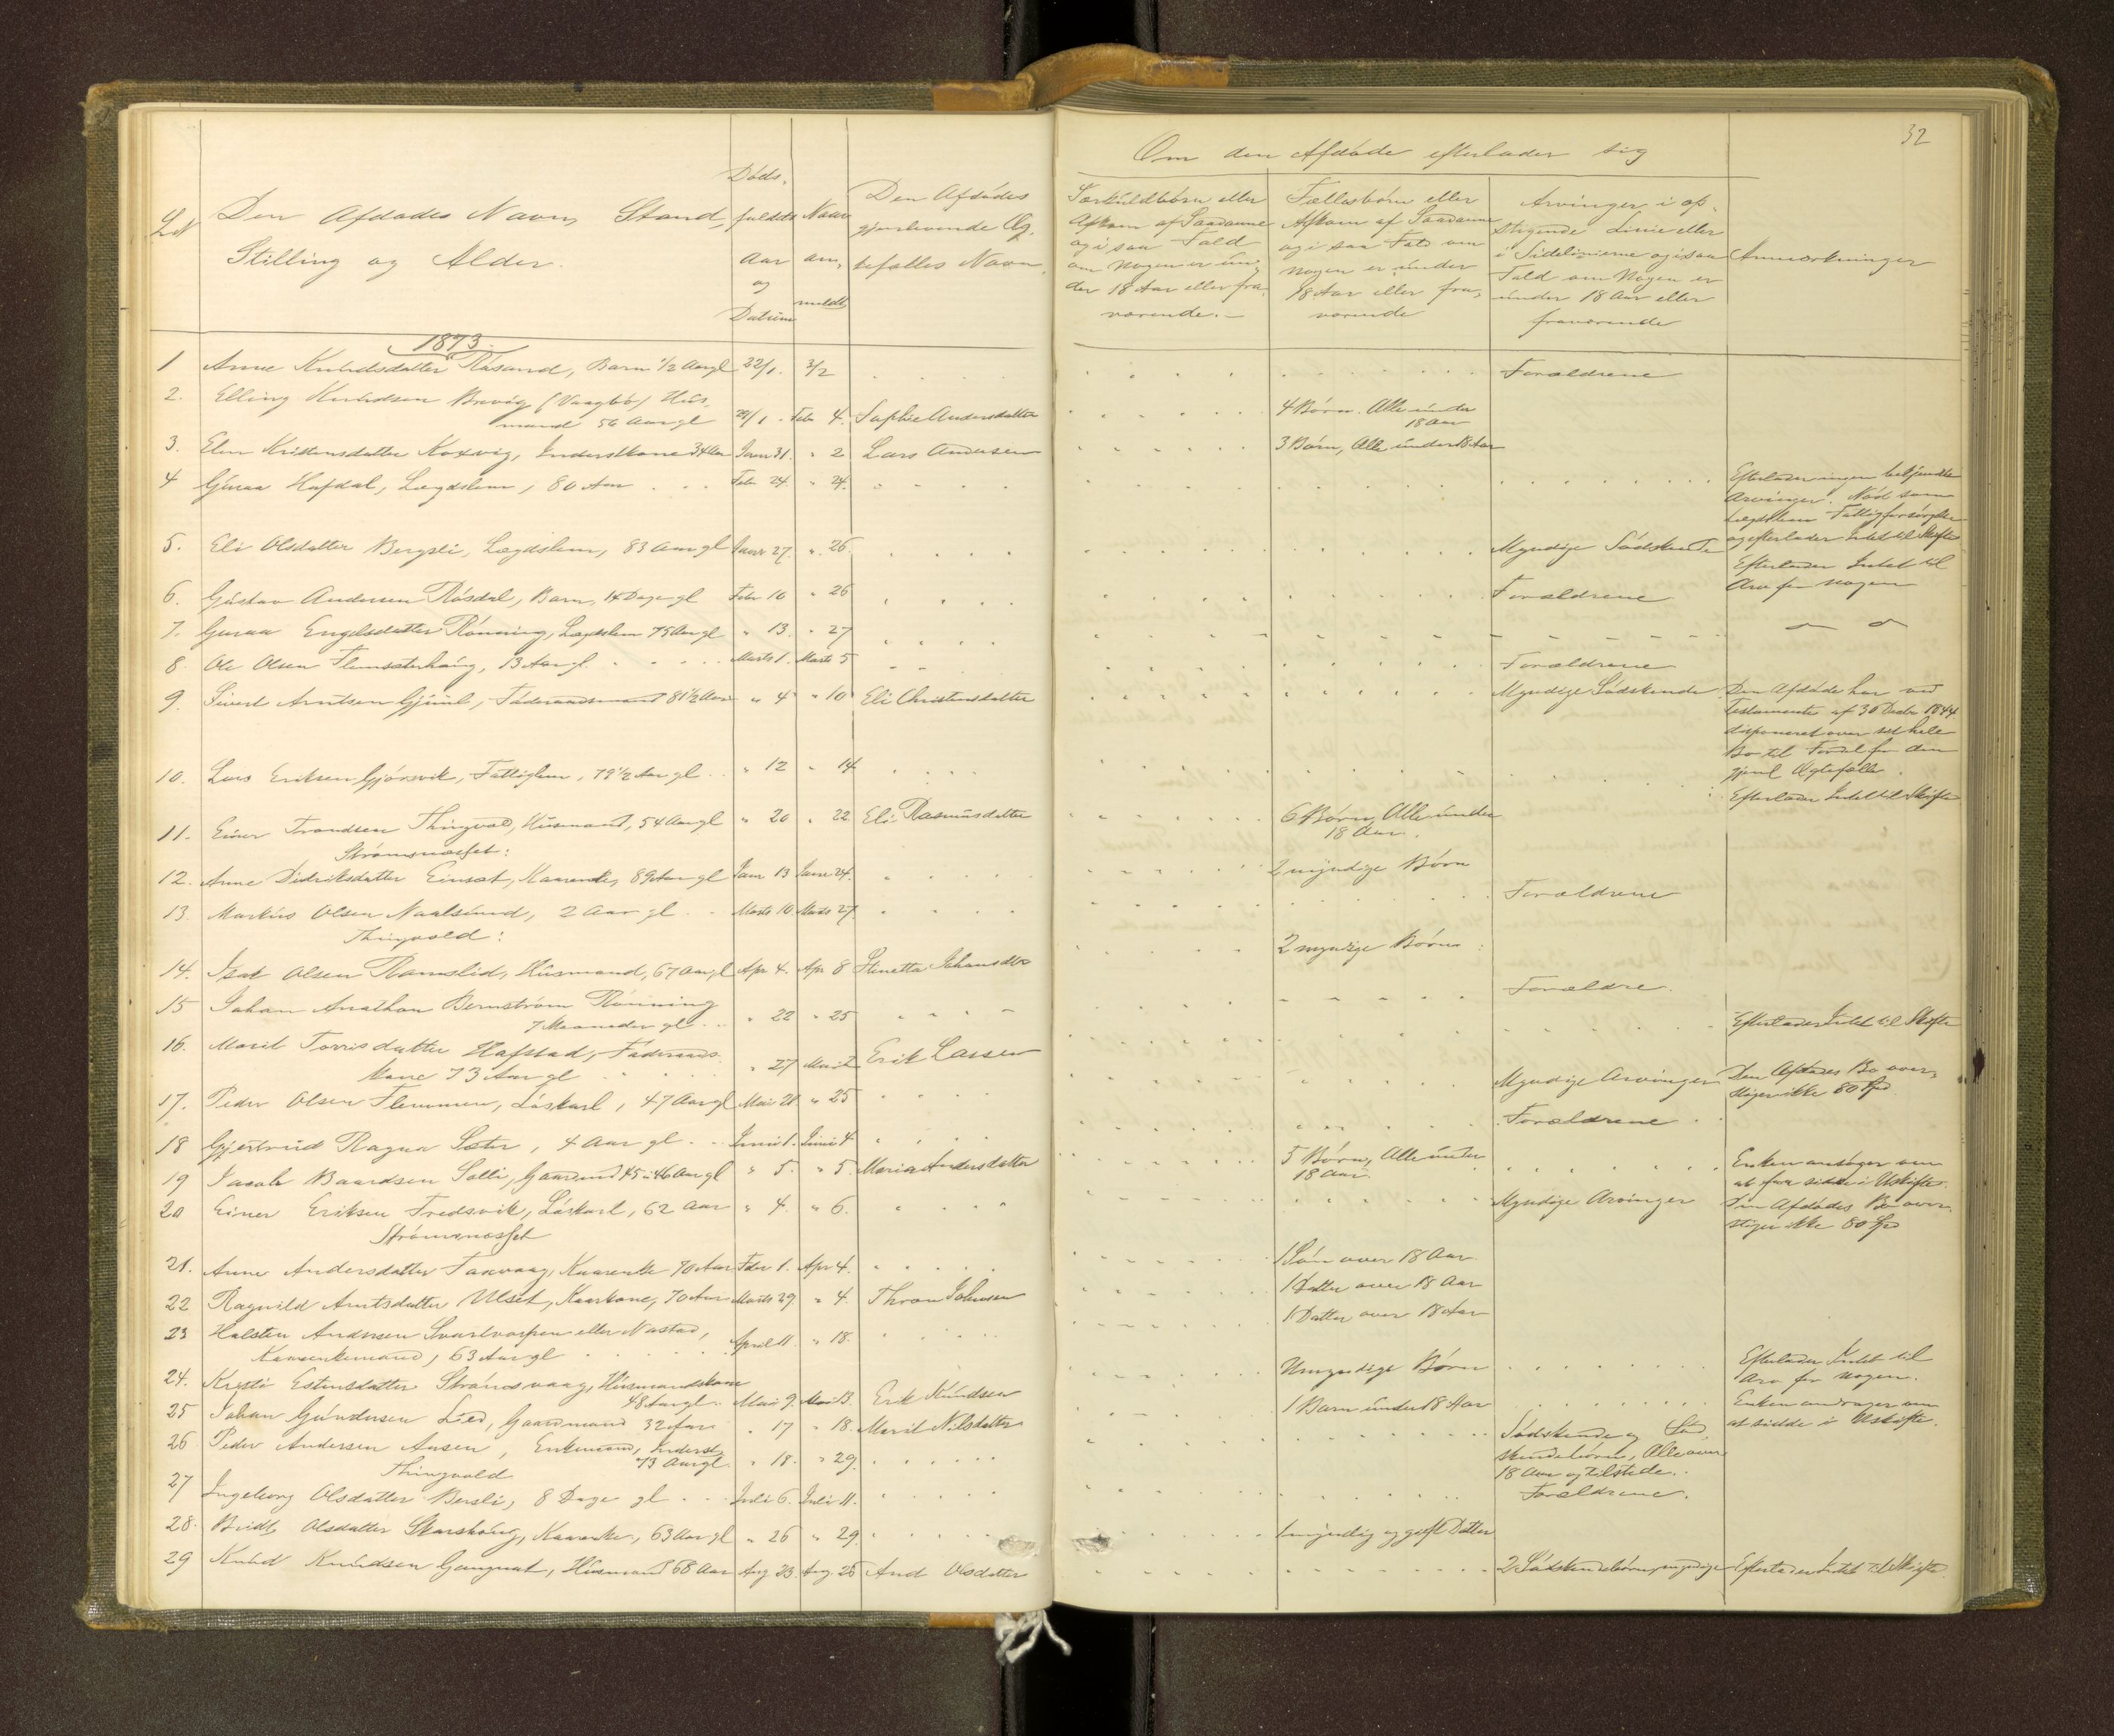 32
Om den Afdøde efterlader sig
Døds-
Den Afdødes Navn, Stand, faldets Naar Den Afdødes
L№ gjenlevende Æg-
Stilling og Alder. Aar an- tefælles Navn.
og
Datum meldt
Særkuldbørn eller Fællesbørn eller Arvinger i op-
Afkom af Saadanne Afkom af Saadanne stigende Linie eller
og i saa Fald og i saa Fald om i Sidelinierne og i saa Anmærkninger
om Nogen er un- Nogen er under Fald om Nogen er
der 18 Aar eller fra- 18 Aar eller fra- under 18 Aar eller
værende.- værende fraværende
1873.
1 Anne Knudsdatter Røsand, Barn ½ Aar gl 22/1. 3/2 Forældrene
2. Elling Knudsen Brevig (Vaagbø) Hus-
mand 56 Aar gl Febr 4. Sophie Andersdatter 4 Børn. Alle under
18 Aar
3. Elen Kristensdatter Koxvig, Inderstkone 34 Aar Janr 31. " 2 Lars Andersen 3 Børn, Alle under 18 Aar
4 Guraa Hafdal, Lægdslem, 80 Aar Febr 24. " 24. Efterlader ingen bekjendte
Arvinger. Nød som
Lægdslem Fattigforsørgelse
og efterlader Intet til Skifte
5. Eli Olsdatter Bergsli, Lægdslem, 83 Aar gl Janr 27. " 26 Myndige Sødskende Efterlader Intet til
Arv for Nogen
6. Gustav Andersen Røsdal, Barn, 14 Dage gl Febr 10 " 26 Forældrene
7. Guraa Engelsdatter Rønning, Lægdslem 75 Aar gl " 13. " 27
8. Ole Olsen Flemsæterhaug, 13 Aar gl. Marts 1. Marts 5 Forældrene
9. Sivert Arntsen Gjøml, Føderaadsmand 81½ Aar " 4 " 10 Eli Christensdatter Myndige Sødskende Den Afdøde har ved
Testamente af 30 Decbr 1844
disponeret over sit hele
Bo til Fordel for den
gjenl Ægtefælle.
10. Lars Eriksen Gjørsvik, Fattiglem, 79½ Aar gl " 12 " 14 Efterlader Intet til Skifte
11. Einer Trondsen Thingvold, Husmand, 54 Aar gl " 20 " 22 Eli Rasmusdatter 6 Børn, Alle under
18 Aar.
Strømsnæsset:
12. Anne Didriksdatter Einset, Kaarenke, 89 Aar gl Janr 13 Janr 24. 2 myndige Børn
13. Markus Olsen Naalsund, 2 Aar gl Marts 10. Marts 27. Forældrene
Thingvold:
14. Isak Olsen Ramslid, Husmand, 67 Aar gl Apr 4. Apr 8 Johansdtr 2 myndige Børn
15 Johan Bernstrøm Rønning
7 Maaneder gl " 22 " 25 Forældre.
16. Marit Torrisdatter Hafstad, Føderaads-
kone 73 Aar gl " 27 Erik Larsen Efterlader Intet til Skifte
17. Peder Olsen Flemmen, Løskarl, 47 Aar gl Mai 21 " 25 Myndige Arvinger Den Afdødes Bo over-
stiger ikke 80 Spd
18 Gjertrud Ragna Sæter, 4 Aar gl Juni 1. Juni 4. Forældrene
19 Jacob Baardsen Solli, Gaardmd 45 à 46 Aar gl " 5. " 5. Maria Andersdatter 5 Børn, Alle under
18 Aar Enken ansøger om
at faa sidde i Uskifte.
20 Einer Eriksen Fredsvik, Løskarl, 62 Aar " 4. " 6. Myndige Arvinger Den Afdødes Bo over-
stiger ikke 80 Spd
Strømsnæsset
21. Anne Andersdatter Faxvaag, Kaarenke 70 Aar Febr 1. Apr 4. 1 Søn over 18 Aar
22 Ragnild Arntsdatter Ulset, Kaarkone, 70 Aar Marts 29. " 4. Thron Johnsen 1 Datter over 18 Aar
23 Halsten Andersen Svartvasfen eller Nastad,
Kaarenkemand, 63 Aar gl April 11 " 18. 1 Datter over 18 Aar
24. Kristi Estensdatter Strømsvaag, Husmandskone
48 Aar gl Mai 9. Mai 13. Erik Knudsen Umyndige Børn Efterlader Intet til
Arv for Nogen.
25 Johan Gundersen Lied, Gaardmand 32 Aar " 17 " 18. Marit Nilsdatter 1 Barn under 18 Aar Enken andrager om
at sidde i Uskifte.
26 Peder Andersen Aasen, Enkemand, Inderst,
73 Aar gl. " 18. " 29. Sødskende og Sød-
skendebørn, Alle over
18 Aar og tilstede.
Thingvold
27 Ingeborg Olsdatter Bersli, 8 Dage gl Juli 6. Juli 11. Forældrene.
28. Olsdatter Skarshaug, Kaarenke, 63 Aar gl " 26 " 29. 1 myndig og gift Datter
29 Knud Knudsen Gangnat, Husmand 68 Aar Aug 23. Aug. 25 And Olsdatter 2 Sødskendebørn, myndige Efterlader Intet til Skifte.